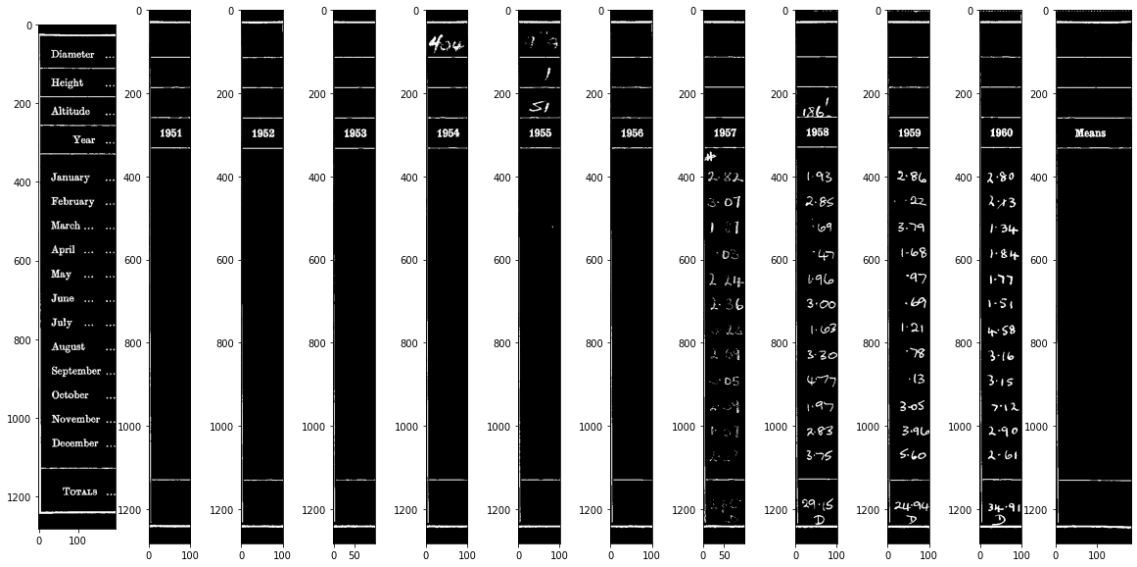 0
200
400
600
800
1000
1200
Diameter ...
Height ...
Altitude ...
Year ...
January ...
February ...
March ... ...
April ... ...
May ... ...
June ... ...
July ... ...
August ...
September ...
October ...
November ...
December ...
TOTALS ...
0 100
0
200
400
600
800
1000
1200
1951
0 100
0
200
400
600
800
1000
1200
1952
0 100
0
200
400
600
800
1000
1200
1953
0 50
0
200
400
600
800
1000
1200
404
1954
0 100
0
200
400
600
800
1000
1200
51
1955
0 100
0
200
400
600
800
1000
1200
1956
0 100
0
200
400
600
800
1000
1200
1957
#
2.82
3.07
2.24
2.36
0 50
0
200
400
600
800
1000
1200
186'
1958
1.93
2.85
.69
.47
1.96
3.00
1.63
3.30
4.77
1.97
2.83
3.75
29.15
D
0 100
0
200
400
600
800
1000
1200
1959
2.86
.22
3.79
1.68
.97
.69
1.21
.78
.13
3.05
3.96
5.60
24.94
D
0 100
0
200
400
600
800
1000
1200
1960
2.80
2.13
1.34
1.84
1.77
1.51
4.58
3.16
3.15
7.12
2.90
2.61
34.91
D
0 100
0
200
400
600
800
1000
1200
Means
0 100